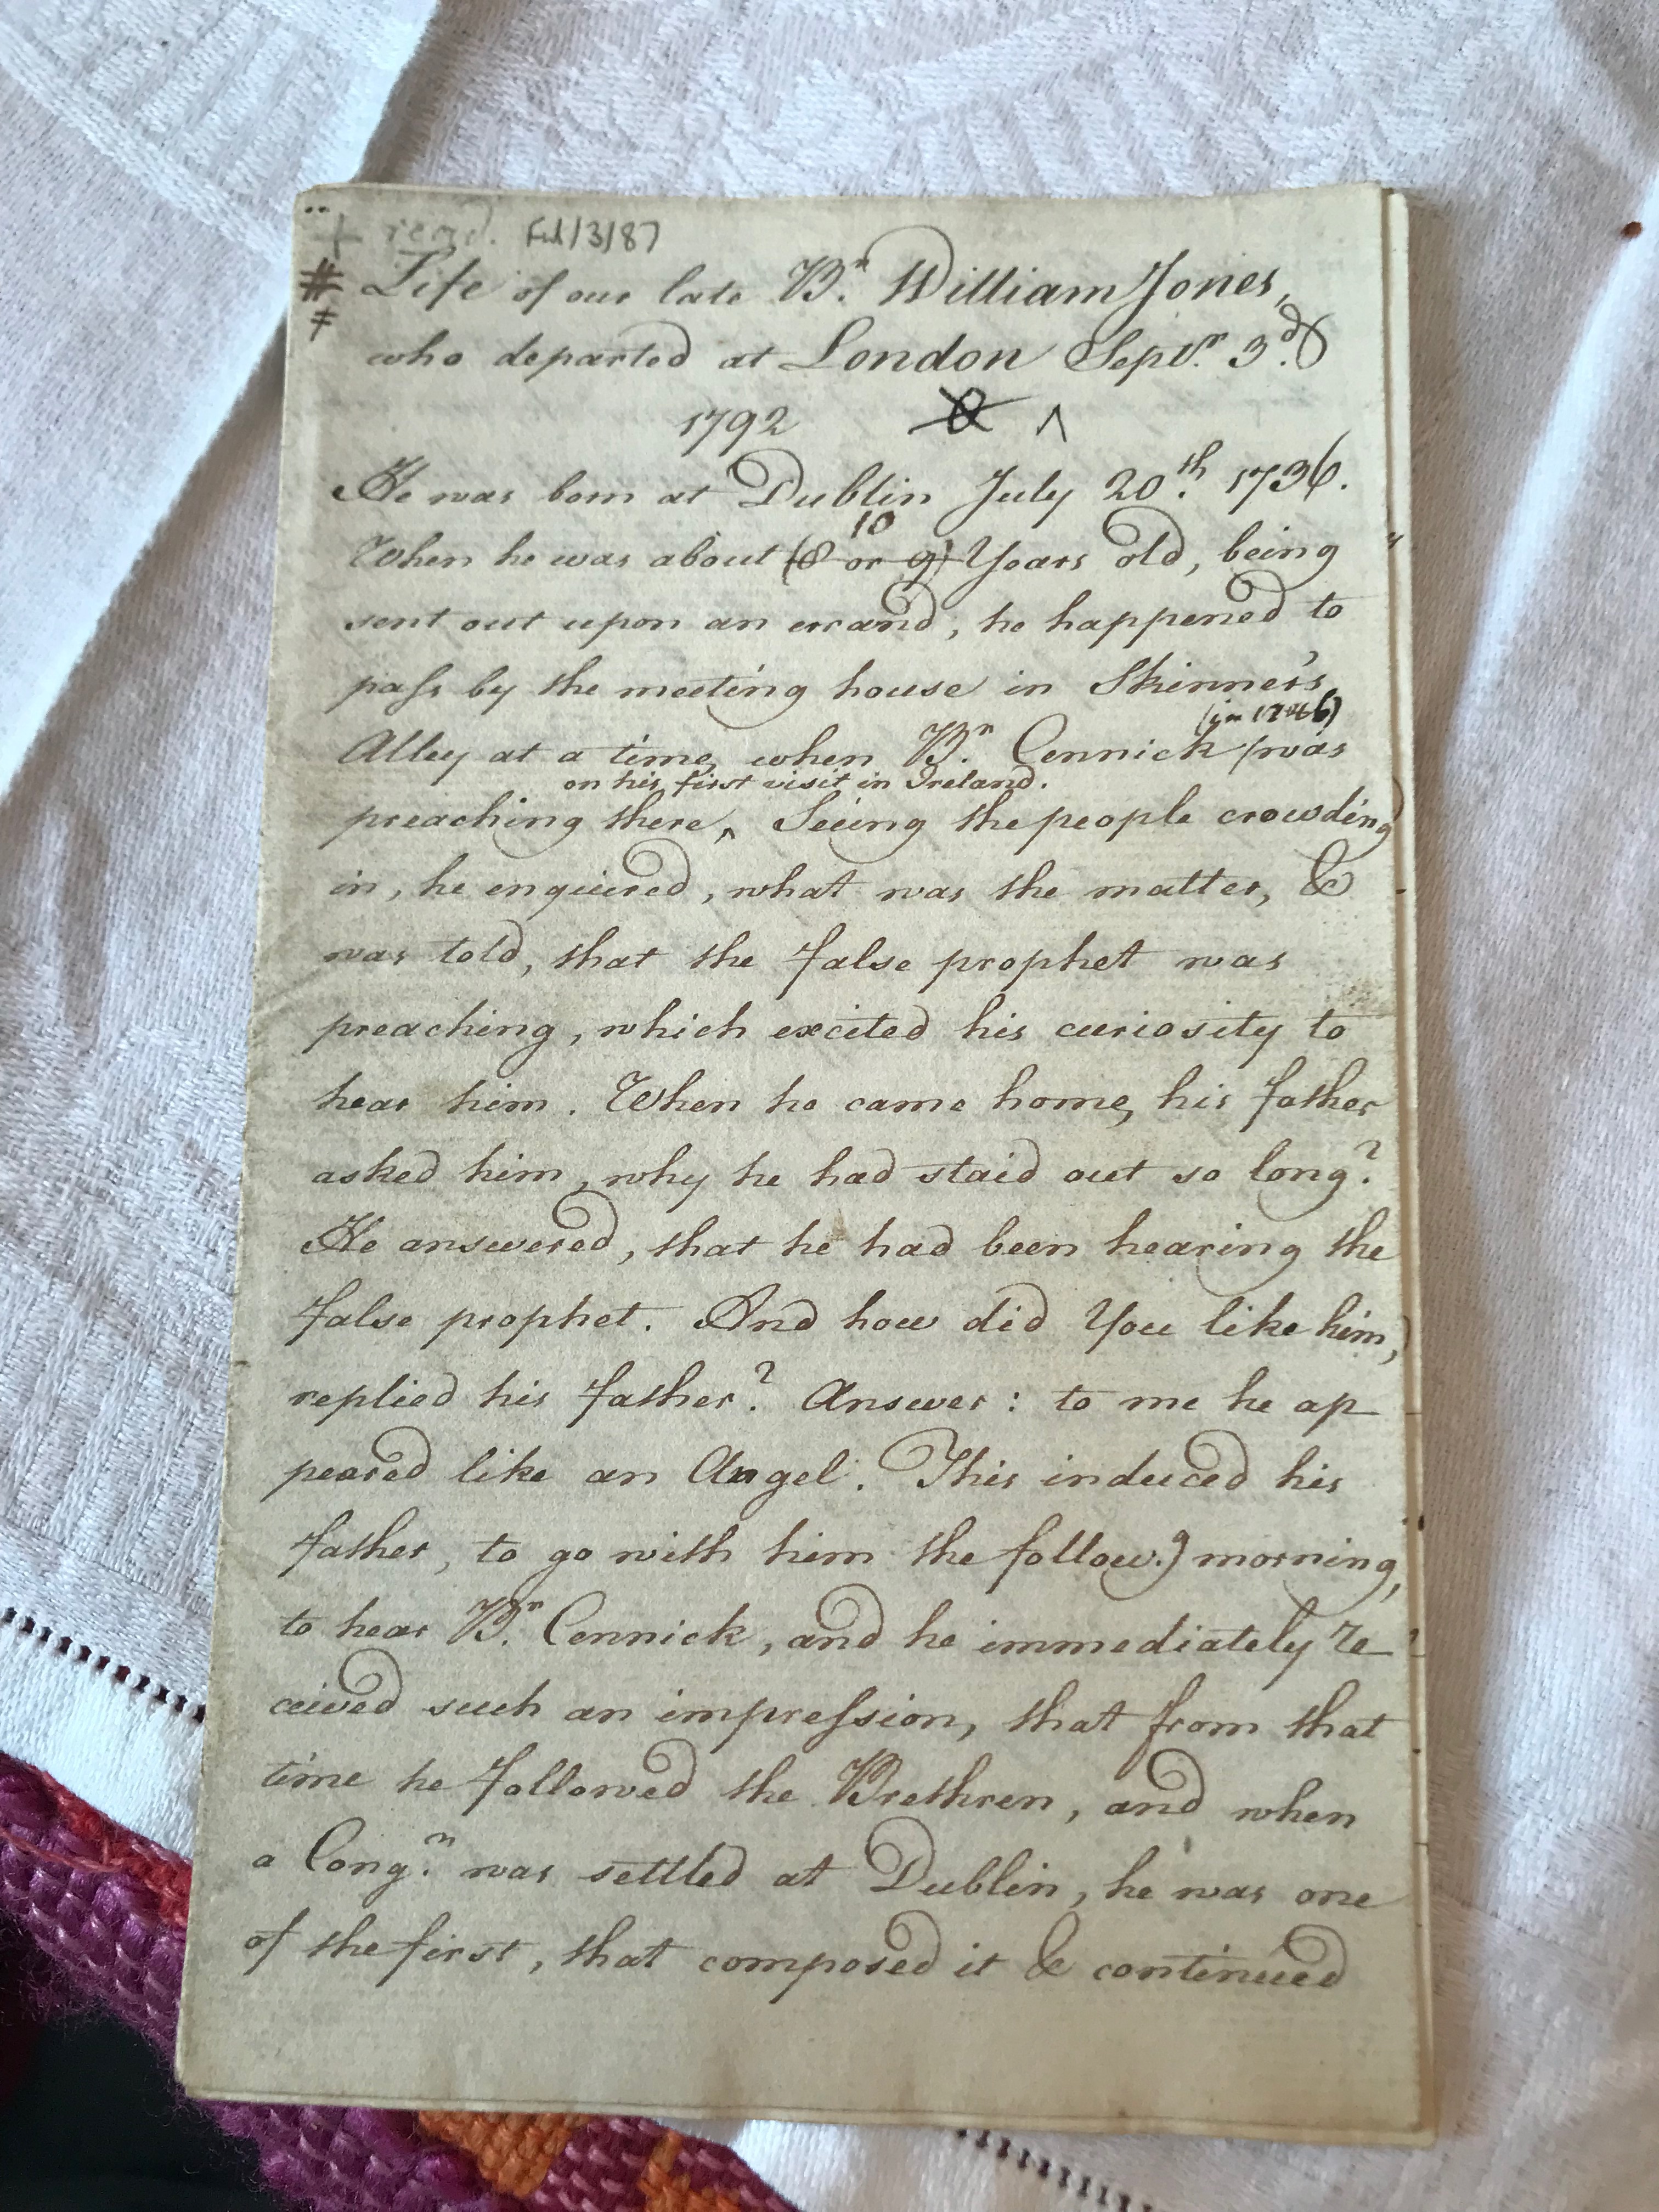 + read. Feb/3/87
# Life of our late Br. William Jones,
≠ who departed at London Septr. 3d.
1792
He was born at Dublin July 20th. 1736.
10
When he was about (8 or 9) Years old, being
sent out upon an errand, he happened to
pass by the meeting house in Skinner's
(in 1746)
Alley at a time, when Br. Cennick was
on his first visit in Ireland.
preaching there ‸ Seeing the people crowding
in, he enquired, what was the matter, &
was told, that the false prophet was
preaching, which excited his curiosity to
hear him. When he came home, his father
asked him, why he had staid out so long?
He answered, that he had been hearing the
false prophet. And how did You like him,
replied his father? Answer: to me he ap
peared like an Angel. This induced his
father, to go with him the follow.g morning,
to hear Br. Cennick, and he immediately re
ceived such an impression, that from that
time he followed the Brethren, and when
a Congn. was settled at Dublin, he was one
of the first, that composed it & continued